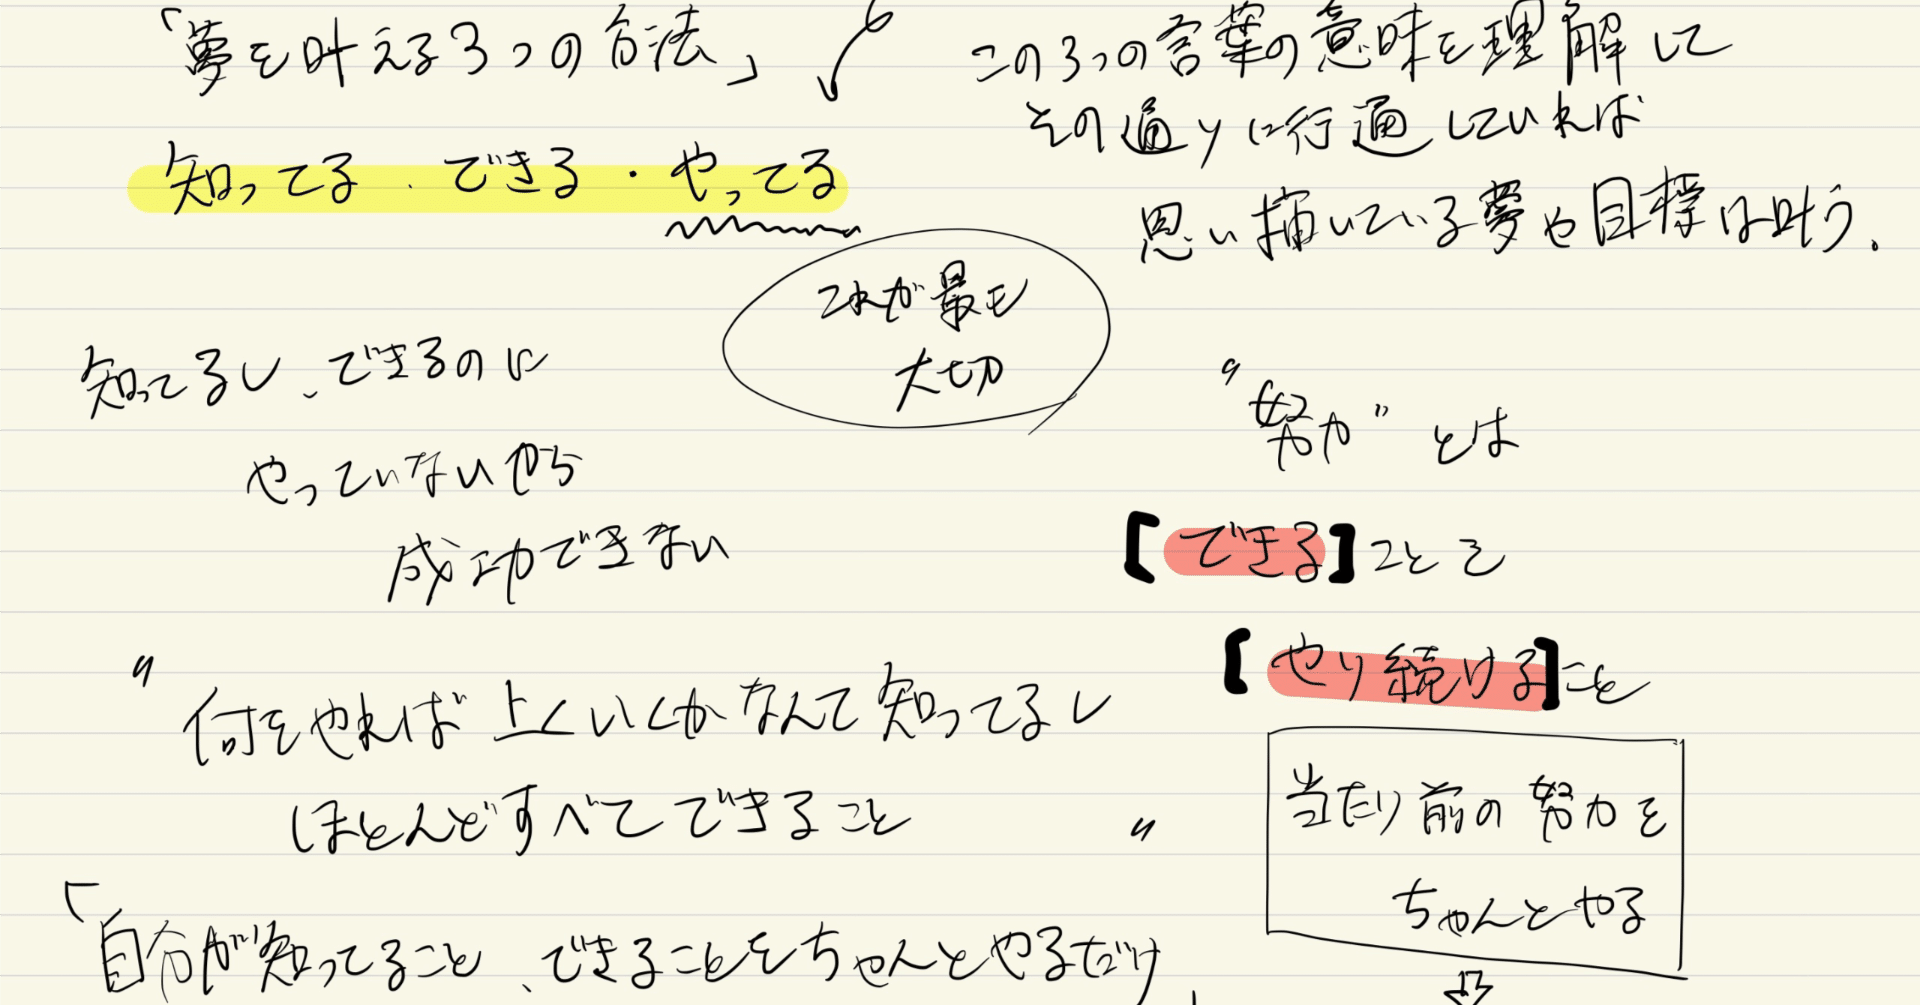 「夢を叶える3つの方法」
知ってる・できる・やってる
これが最も
大切
知ってるし、できるのに
やっていないから
成功できない
"何をやれば上くいくかなんて知ってるし
ほとんどすべてできること"
「自分が知ってること、できることをちゃんとやるだけ」
この3つの言葉の意味を理解して
その通りに行通していれば
思い描いている夢や目標は叶う。
"努力"とは
【できる】ことを
【やり続ける】こと
当たり前の努力を
ちゃんとやる